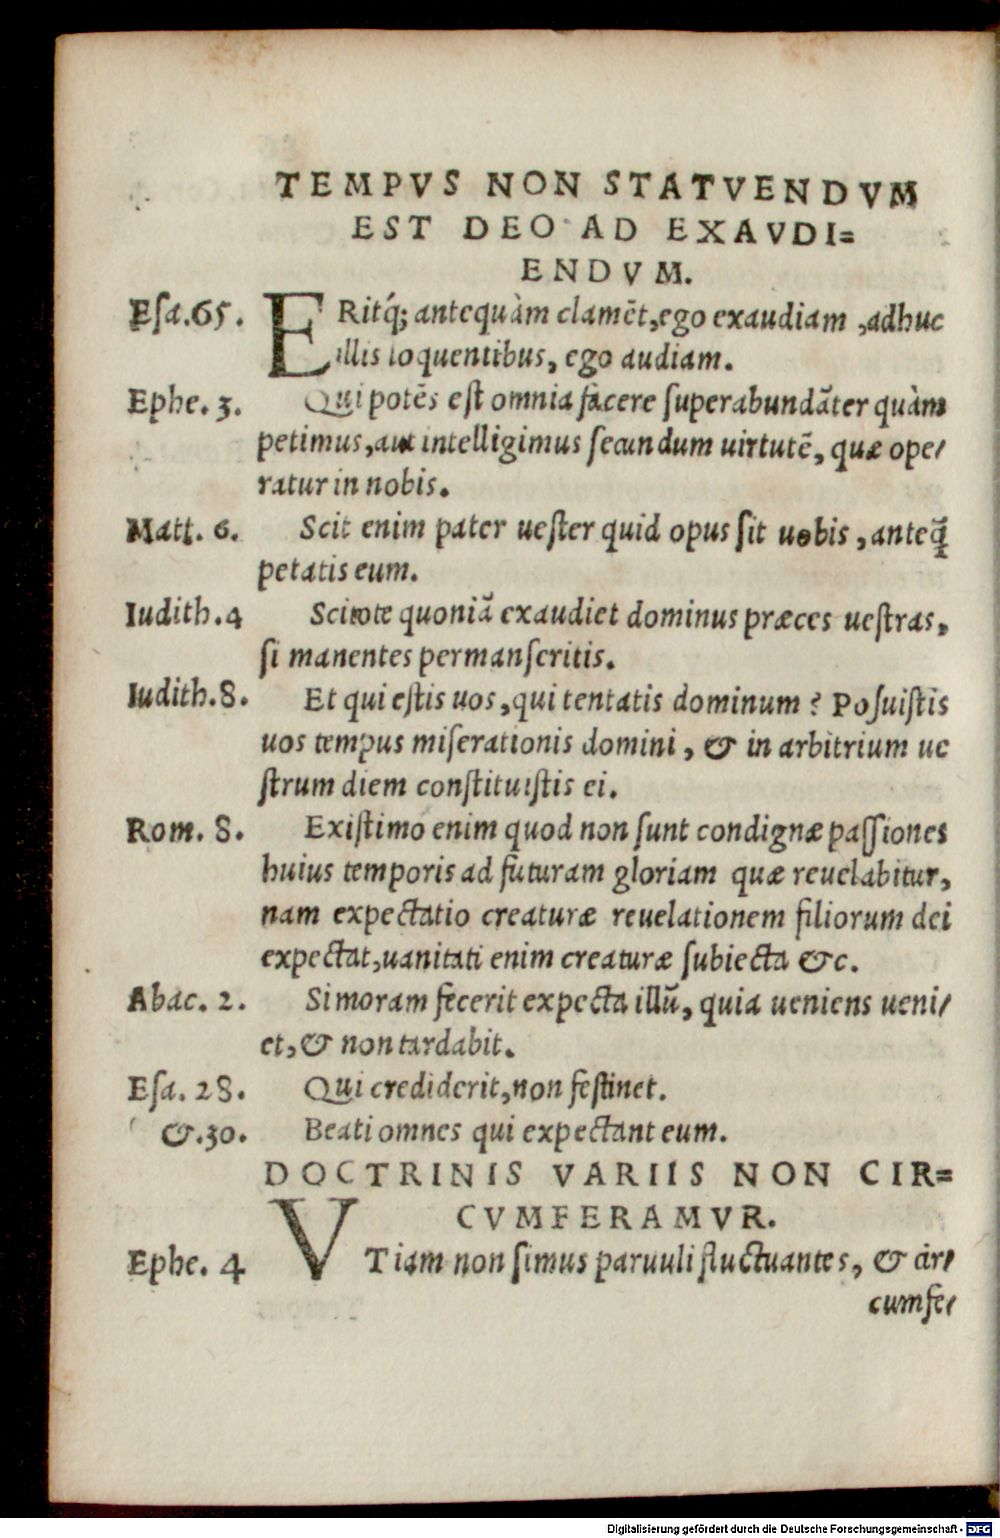 TEMPVS NON STATVENDVM
EST DEO AD EXAVDI=
ENDVM.
Eſa.65. ERitq́; antequàm clamẽt,ego exaudiam ,adhuc
illis loquentibus, ego audiam.
Ephe. 3. Qui potẽs eſt omnia facere ſuperabundãter quàm
petimus,aut intelligimus ſecundum uirtutẽ, quæ ope/
ratur in nobis.
Matt. 6. Scit enim pater ueſter quid opus ſit uobis , anteq̃
petatis eum.
Iudith.4 Scitote quoniã exaudiet dominus præces ueſtras,
ſi manentes permanſeritis.
Iudith.8. Et qui eſtis uos,qui tentatis dominum ? Poſuiſtis
uos tempus miſerationis domini , & in arbitrium ue
ſtrum diem conſtituiſtis ei.
Rom. 8. Exiſtimo enim quod non ſunt condignæ paſſiones
huius temporis ad futuram gloriam quæ reuelabitur,
nam expectatio creaturæ reuelationem filiorum dei
expectat,uanitati enim creaturæ ſubiecta &c.
Abac. 2. Si moram fecerit expecta illũ, quia ueniens ueni/
et,& non tardabit.
Eſa. 28. Qui crediderit,non feſtinet.
&.30. Beati omnes qui expectant eum.
DOCTRINIS VARIIS NON CIR=
CVMFERAMVR.
Ephe. 4 VT iam non ſimus paruuli fluctuantes, & cir/
cumfe/
Digitalisierung gefördert durch die Deutsche Forschungsgemeinschaft - DFG